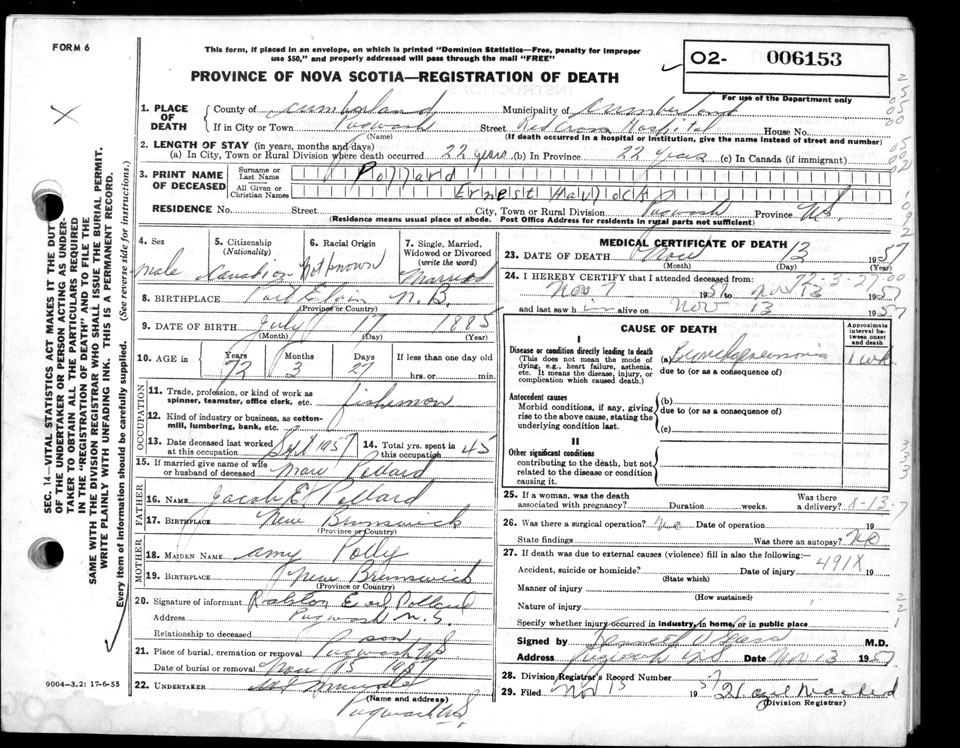 FORM 6
This form, if placed in an envelope, on which is printed "Dominion Statistics—Free, penalty for improper
use $50," and properly addressed will pass through the mail "FREE"
PROVINCE OF NOVA SCOTIA—REGISTRATION OF DEATH
O2- 006153
For use of the Department only
SEC. 14—VITAL STATISTICS ACT MAKES IT THE DUTY
OF THE UNDERTAKER OR PERSON ACTING AS UNDER-
TAKER TO OBTAIN ALL THE PARTICULARS REQUIRED
IN THE "REGISTRATION OF DEATH" AND TO FILE THE
SAME WITH THE DIVISION REGISTRAR WHO SHALL ISSUE THE BURIAL PERMIT.
WRITE PLAINLY WITH UNFADING INK. THIS IS A PERMANENT RECORD.
Every item of information should be carefully supplied. (See reverse side for instructions.)
1. PLACE OF DEATH County of Cumberland Municipality of Cumberland
If in City or Town Pugwash Street Red Cross Hospital House No.
(Name) (If death occurred in a hospital or institution, give the name instead of street and number)
2. LENGTH OF STAY (in years, months and days)
(a) In City, Town or Rural Division where death occurred 22 years (b) In Province 22 years (c) In Canada (if immigrant)
3. PRINT NAME OF DECEASED Surname or Last Name Pollard
All Given or Christian Names Ernest Havlock
RESIDENCE No. Street City, Town or Rural Division Pugwash Province N.S.
(Residence means usual place of abode. Post Office Address for residents in rural parts not sufficient)
4. Sex male
5. Citizenship (Nationality) Canadian
6. Racial Origin Not known
7. Single, Married, Widowed or Divorced (write the word) Married
8. BIRTHPLACE Port Elgin N.B.
(Province or Country)
9. DATE OF BIRTH July 17 1885
(Month) (Day) (Year)
10. AGE in Years 72 Months 3 Days 27 If less than one day old hrs. or min.
OCCUPATION
11. Trade, profession, or kind of work as spinner, teamster, office clerk, etc. fisherman
12. Kind of industry or business, as cotton-mill, lumbering, bank, etc.
13. Date deceased last worked at this occupation Sept 1957 14. Total yrs. spent in this occupation 45
15. If married give name of wife or husband of deceased Pollard
FATHER
16. NAME Jacob E. Pollard
17. BIRTHPLACE New Brunswick
(Province or Country)
MOTHER
18. MAIDEN NAME Amy Polly
19. BIRTHPLACE New Brunswick
(Province or Country)
20. Signature of informant Pollard
Address Pugwash N.S.
Relationship to deceased son
21. Place of burial, cremation or removal Pugwash NS
Date of burial or removal Nov 15 1957
22. UNDERTAKER
(Name and address)
Pugwash NS.
9004-3.2: 17-6-55
MEDICAL CERTIFICATE OF DEATH
23. DATE OF DEATH Nov 13 1957
(Month) (Day) (Year)
22-3-27-00
24. I HEREBY CERTIFY that I attended deceased from:
Nov 7 1957 to Nov 13 1957
and last saw him alive on Nov 13 1957
CAUSE OF DEATH
Approximate interval between onset and death
I
Disease or condition directly leading to death
(This does not mean the mode of dying, e.g., heart failure, asthenia, etc. It means the disease, injury, or complication which caused death.)
(a) Bronchopneumonia 1 wk
due to (or as a consequence of)
Antecedent causes
Morbid conditions, if any, giving rise to the above cause, stating the underlying condition last.
(b)
due to (or as a consequence of)
(c)
II
Other significant conditions
contributing to the death, but not related to the disease or condition causing it.
25. If a woman, was the death associated with pregnancy? Duration weeks. Was there a delivery? 8-13-7
26. Was there a surgical operation? No Date of operation 19
State findings Was there an autopsy? No
27. If death was due to external causes (violence) fill in also the following:—
Accident, suicide or homicide? Date of injury 491X 19
(State which)
Manner of injury
(How sustained)
Nature of injury
Specify whether injury occurred in industry, in home, or in public place
Signed by Kenneth M.D.
Address Pugwash NS Date Nov 13 1957
28. Division Registrar's Record Number
29. Filed Nov 15 1957
(Division Registrar)